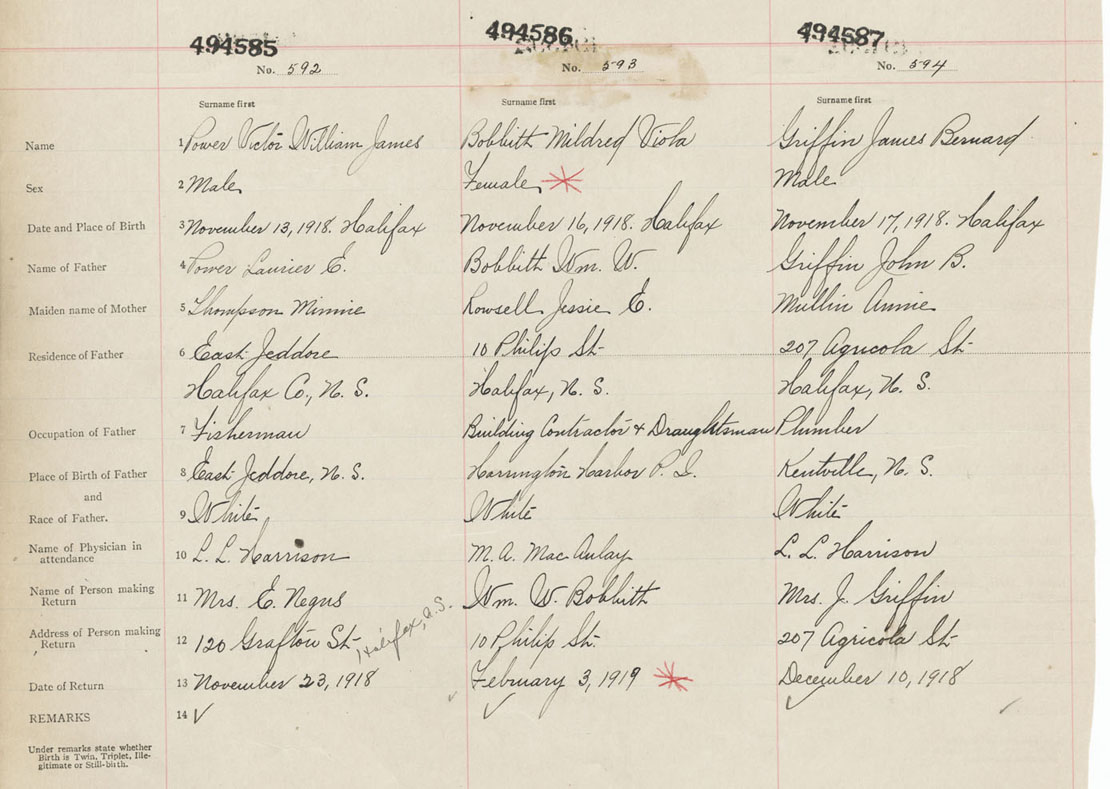 494585 494586 494587
No. 592 No. 593 No. 594
Surname first Surname first Surname first
Name 1 Power Victor William James Bobbitt Mildred Viola Griffin James Bernard
Sex 2 Male Female Male
Date and Place of Birth 3 November 13, 1918. Halifax November 16, 1918. Halifax November 17, 1918. Halifax
Name of Father 4 Power Laurier E. Bobbitt Wm. W. Griffin John B.
Maiden name of Mother 5 Thompson Minnie Rowsell Jessie E. Mullin Annie
Residence of Father 6 East Jeddore 10 Philip St. 207 Agricola St.
Halifax Co., N. S. Halifax, N. S. Halifax, N. S.
Occupation of Father 7 Fisherman Building Contractor & Draughtsman Plumber
Place of Birth of Father 8 East Jeddore, N. S. Harrington Harbor P. I. Kentville, N. S.
and
Race of Father. 9 White White White
Name of Physician in
attendance 10 L. L. Harrison M. A. MacAulay L. L. Harrison
Name of Person making
Return 11 Mrs. E. Negus Wm. W. Bobbitt Mrs. J. Griffin
Address of Person making
Return 12 120 Grafton St. Halifax, N.S. 10 Philip St. 207 Agricola St.
Date of Return 13 November 23, 1918 February 3, 1919 December 10, 1918
REMARKS 14
Under remarks state whether
Birth is Twin, Triplet, Ille-
gitimate or Still-birth.